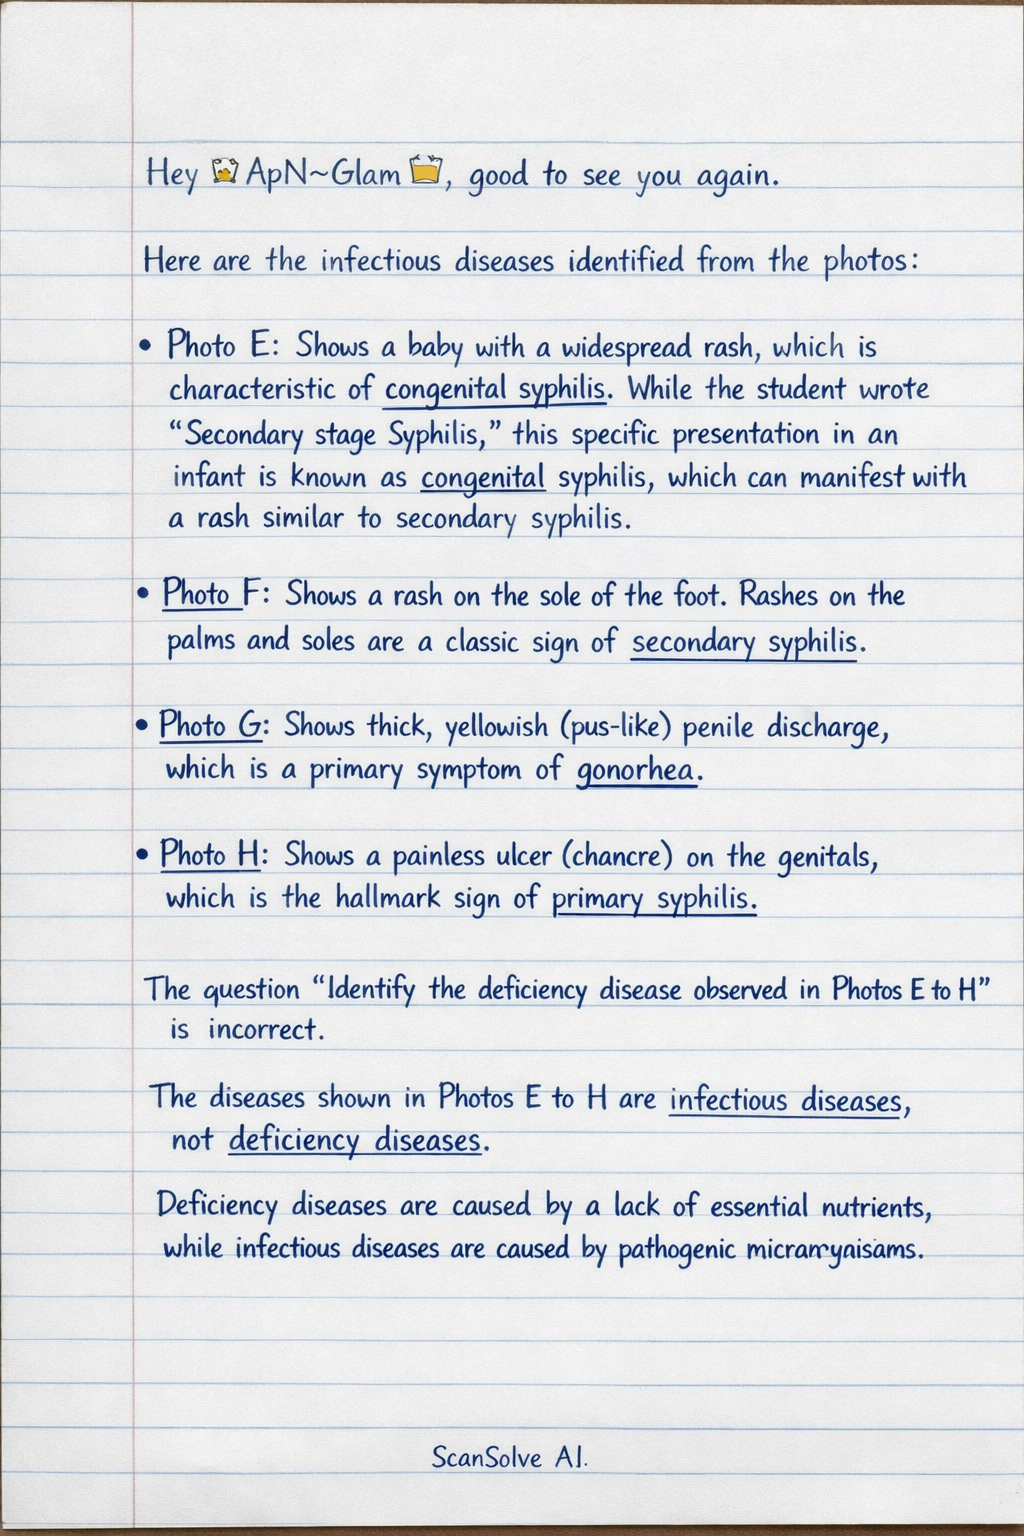 Hey ApN~Glam, good to see you again.
Here are the infectious diseases identified from the photos:
• Photo E: Shows a baby with a widespread rash, which is
characteristic of congenital syphilis. While the student wrote
“Secondary stage Syphilis,” this specific presentation in an
infant is known as congenital syphilis, which can manifest with
a rash similar to secondary syphilis.
• Photo F: Shows a rash on the sole of the foot. Rashes on the
palms and soles are a classic sign of secondary syphilis.
• Photo G: Shows thick, yellowish (pus-like) penile discharge,
which is a primary symptom of gonorhea.
• Photo H: Shows a painless ulcer (chancre) on the genitals,
which is the hallmark sign of primary syphilis.
The question “Identify the deficiency disease observed in Photos E to H”
is incorrect.
The diseases shown in Photos E to H are infectious diseases,
not deficiency diseases.
Deficiency diseases are caused by a lack of essential nutrients,
while infectious diseases are caused by pathogenic
ScanSolve AI.